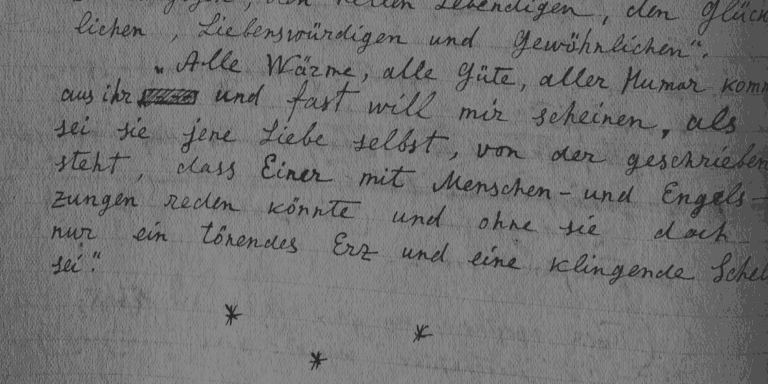 den hellen Lebendigen, den Glück
lichen, Liebenswürdigen und Gewöhnlichen".
„Alle Wärme, alle Güte, aller Humor kom
aus ihr und fast will mir scheinen, als
sei sie jene Liebe selbst, von der geschrieben
steht, dass Einer mit Menschen- und Engels-
zungen reden könnte und ohne sie doch
nur ein tönendes Erz und eine klingende Schel
sei."
* * *